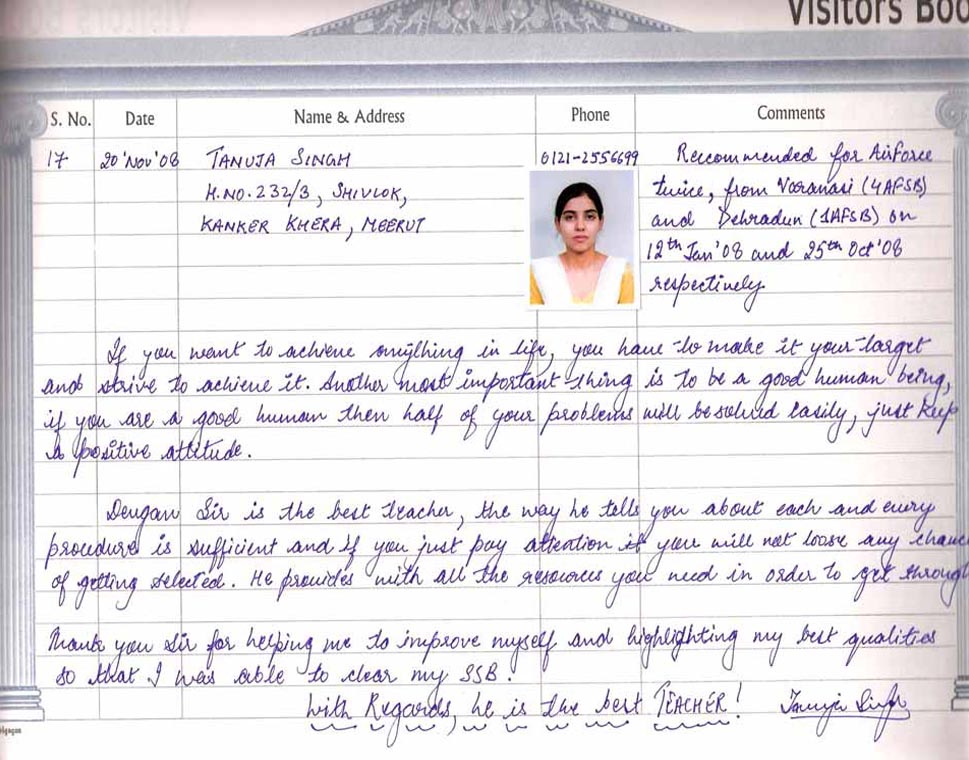 Visitors Boo
S. No. Date Name & Address Phone Comments
17 20 'Nov '08 TANUJA SINGH 0121-2556699 Reccommended for Airforce
H.NO. 232/3, SHIVLOK, twice, from Varanasi (4AFSB)
KANKER KHERA, MEERUT and Dehradun (1AFSB) on
12th Jan '08 and 25th Oct '08
respectively.
If you want to achieve anything in life, you have to make it your target
and strive to achieve it. Another most important thing is to be a good human being,
if you are a good human then half of your problems will be solved easily, just keep
a positive attitude.
Sir is the best teacher, the way he tells you about each and every
procedure is sufficient and if you just pay attention you will not loose any chanc
of getting selected. He provides with all the resources you need in order to get through
Thank you Sir for helping me to improve myself and highlighting my best qualities
so that I was able to clear my SSB.
With Regards, he is the best TEACHER! Tanuja Singh